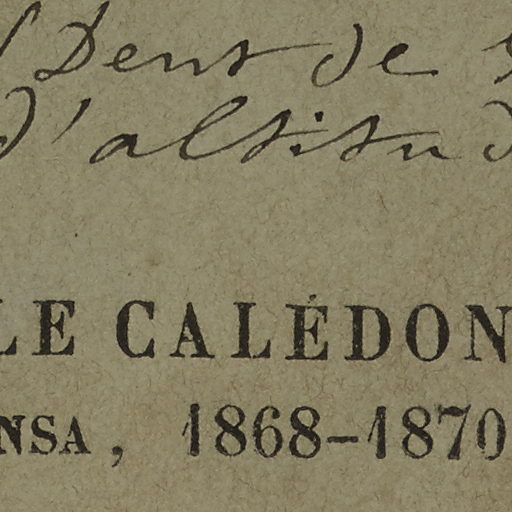 Dent de
d'altitud
LE CALÉDON
NSA, 1868–1870